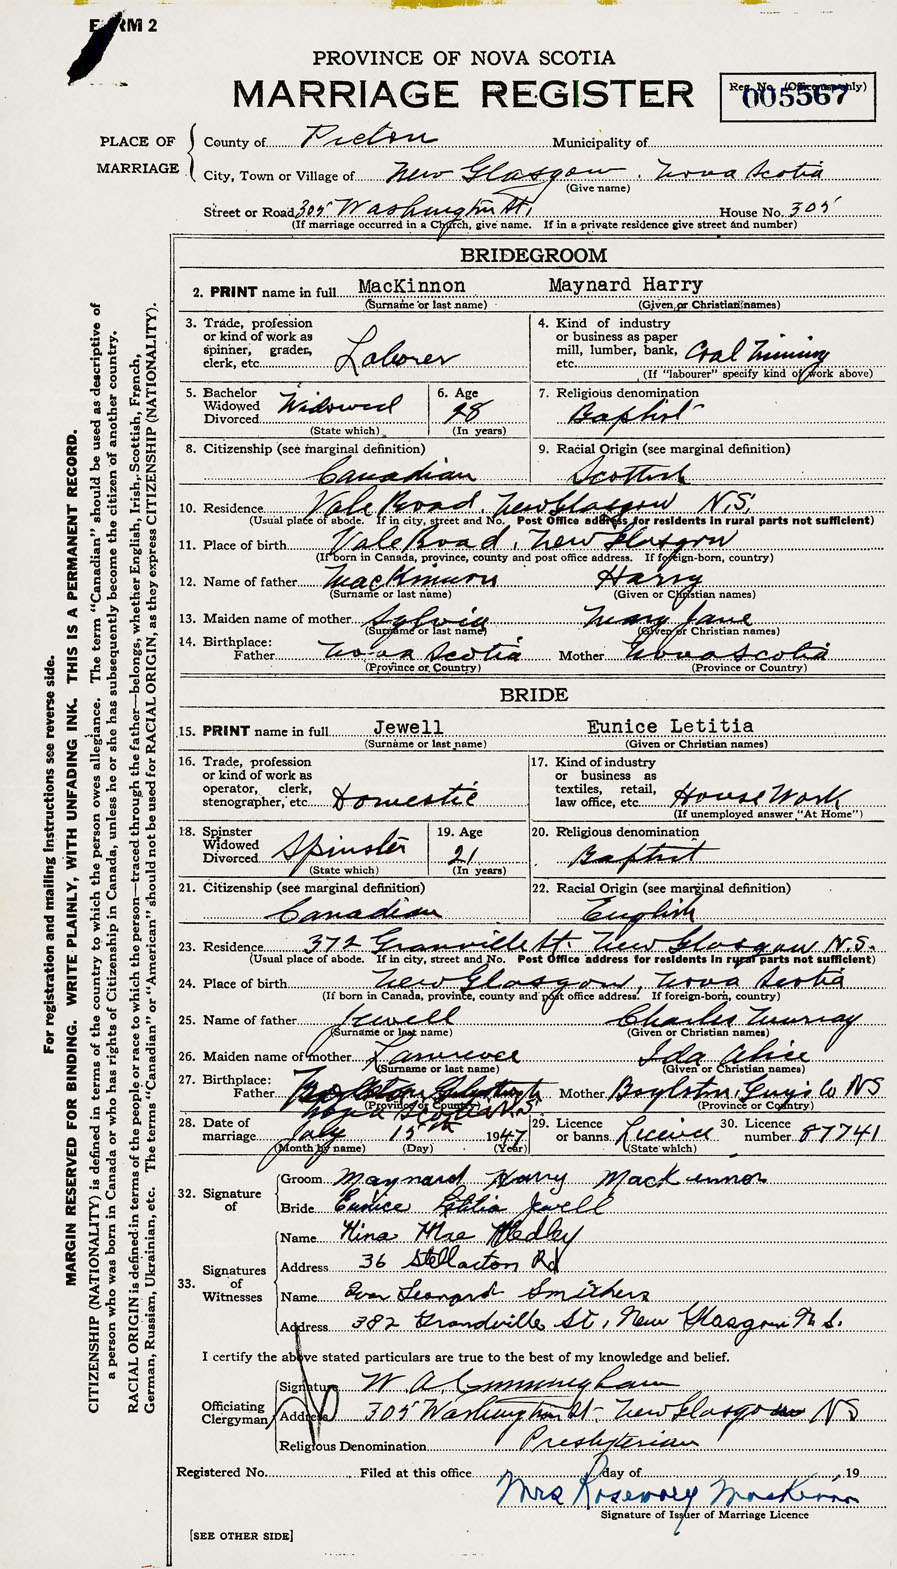 FORM 2
PROVINCE OF NOVA SCOTIA
MARRIAGE REGISTER
Reg. No. (Office use only)
005567
PLACE OF MARRIAGE
County of Pictou Municipality of
City, Town or Village of New Glasgow, Nova Scotia
(Give name)
Street or Road 305 Washington St, House No. 305
(If marriage occurred in a Church, give name. If in a private residence give street and number)
BRIDEGROOM
2. PRINT name in full MacKinnon Maynard Harry
(Surname or last name) (Given or Christian names)
3. Trade, profession or kind of work as spinner, grader, clerk, etc. Laborer
4. Kind of industry or business as paper mill, lumber, bank, etc. Coal Mining
(If "labourer" specify kind of work above)
5. Bachelor Widowed Divorced Widowed
(State which)
6. Age 28
(In years)
7. Religious denomination
Baptist
8. Citizenship (see marginal definition)
Canadian
9. Racial Origin (see marginal definition)
Scottish
10. Residence Vale Road, New Glasgow N.S.
(Usual place of abode. If in city, street and No. Post Office address for residents in rural parts not sufficient)
11. Place of birth Vale Road, New Glasgow
(If born in Canada, province, county and post office address. If foreign-born, country)
12. Name of father MacKinnon Harry
(Surname or last name) (Given or Christian names)
13. Maiden name of mother Sylvia Mary Jane
(Surname or last name) (Given or Christian names)
14. Birthplace:
Father Nova Scotia Mother Nova Scotia
(Province or Country) (Province or Country)
BRIDE
15. PRINT name in full Jewell Eunice Letitia
(Surname or last name) (Given or Christian names)
16. Trade, profession or kind of work as operator, clerk, stenographer, etc. Domestic
17. Kind of industry or business as textiles, retail, law office, etc. House Work
(If unemployed answer "At Home")
18. Spinster Widowed Divorced Spinster
(State which)
19. Age 21
(In years)
20. Religious denomination
Baptist
21. Citizenship (see marginal definition)
Canadian
22. Racial Origin (see marginal definition)
English
23. Residence 372 Granville St. New Glasgow N.S.
(Usual place of abode. If in city, street and No. Post Office address for residents in rural parts not sufficient)
24. Place of birth New Glasgow, Nova Scotia
(If born in Canada, province, county and post office address. If foreign-born, country)
25. Name of father Jewell Charles Murray
(Surname or last name) (Given or Christian names)
26. Maiden name of mother Lawrence Ida Alice
(Surname or last name) (Given or Christian names)
27. Birthplace:
Father Mother Boylston, Guys Co NS
(Province or Country) (Province or Country)
28. Date of marriage July 15th 1947
(Month by name) (Day) (Year)
29. Licence or banns. Licence
(State which)
30. Licence number 87741
32. Signature of
Groom Maynard Harry MacKinnon
Bride Eunice Letitia Jewell
33. Signatures of Witnesses
Name Nina Mae Medley
Address 36 Stellarton Rd
Name Leonard Smithers
Address 382 Grandville St, New Glasgow N.S.
I certify the above stated particulars are true to the best of my knowledge and belief.
Officiating Clergyman
Signature W. A. Cunningham
Address 305 Washington St. New Glasgow NS
Religious Denomination Presbyterian
Registered No. Filed at this office day of 19
Mrs Rosemary MacKinnon
Signature of Issuer of Marriage Licence
[SEE OTHER SIDE]
For registration and mailing instructions see reverse side.
MARGIN RESERVED FOR BINDING. WRITE PLAINLY, WITH UNFADING INK. THIS IS A PERMANENT RECORD.
CITIZENSHIP (NATIONALITY) is defined in terms of the country to which the person owes allegiance. The term "Canadian" should be used as descriptive of
a person who was born in Canada or who has rights of Citizenship in Canada, unless he or she has subsequently become the citizen of another country.
RACIAL ORIGIN is defined in terms of the people or race to which the person—traced through the father—belongs, whether English, Irish, Scottish, French,
German, Russian, Ukrainian, etc. The terms "Canadian" or "American" should not be used for RACIAL ORIGIN, as they express CITIZENSHIP (NATIONALITY).